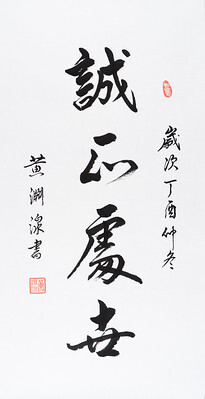 歲次丁酉仲冬
誠正處世
黃淵泉書